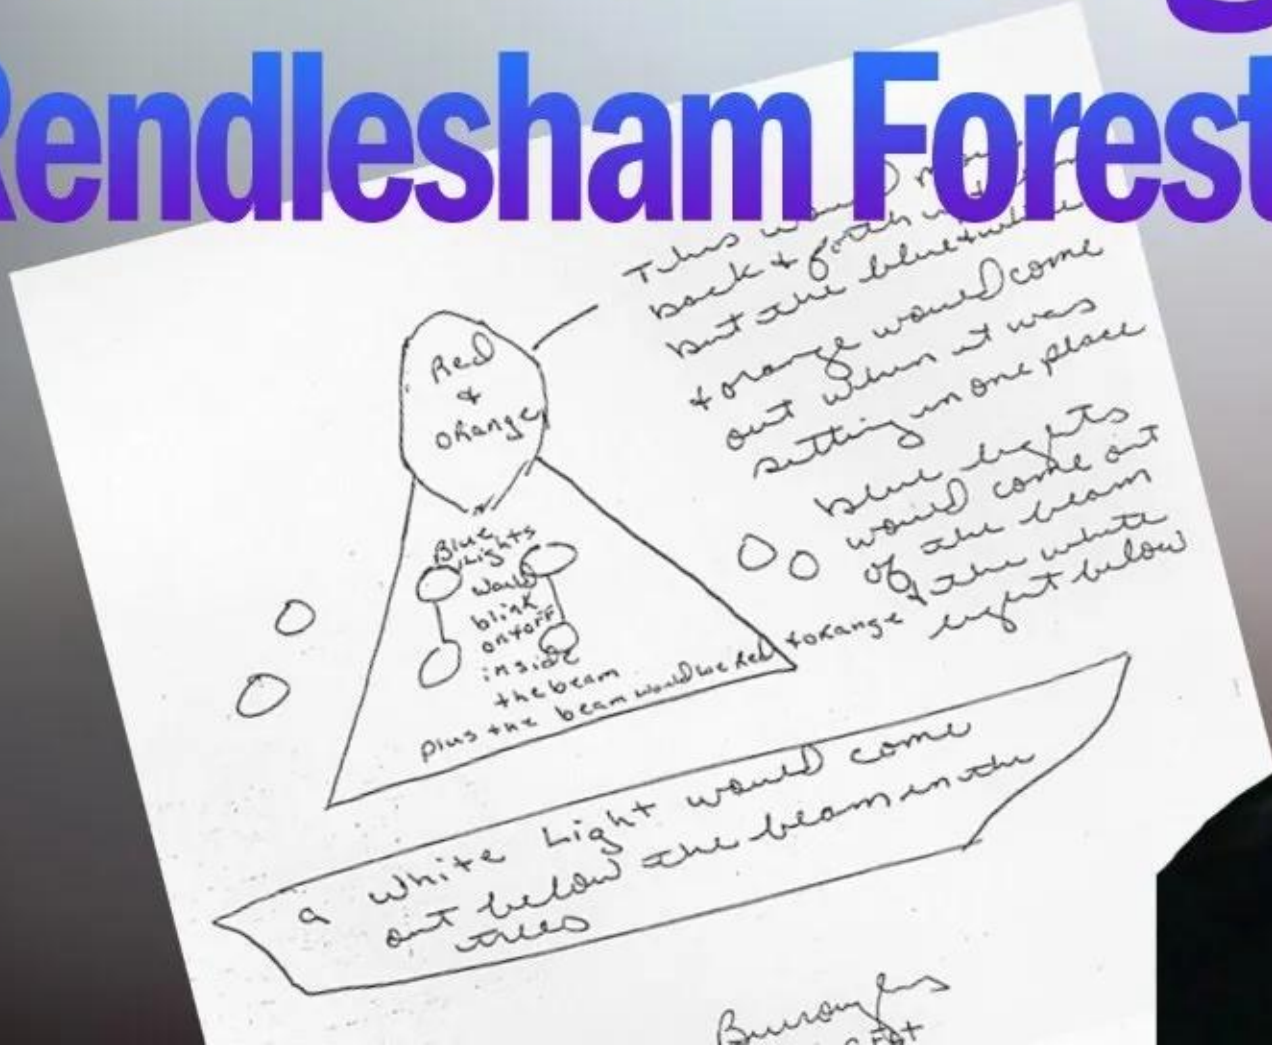 Rendlesham Forest
This would move
back + forth
but the blue + white
+ orange would come
out when it was
setting in one place
Red
+
Orange
blue lights
would come out
of the beam
+ the white
light below
Blue
Lights
would
blink
on+off
inside
the beam
plus the beam would be Red + orange
a white Light would come
out below the beam in the
trees
Burroughs